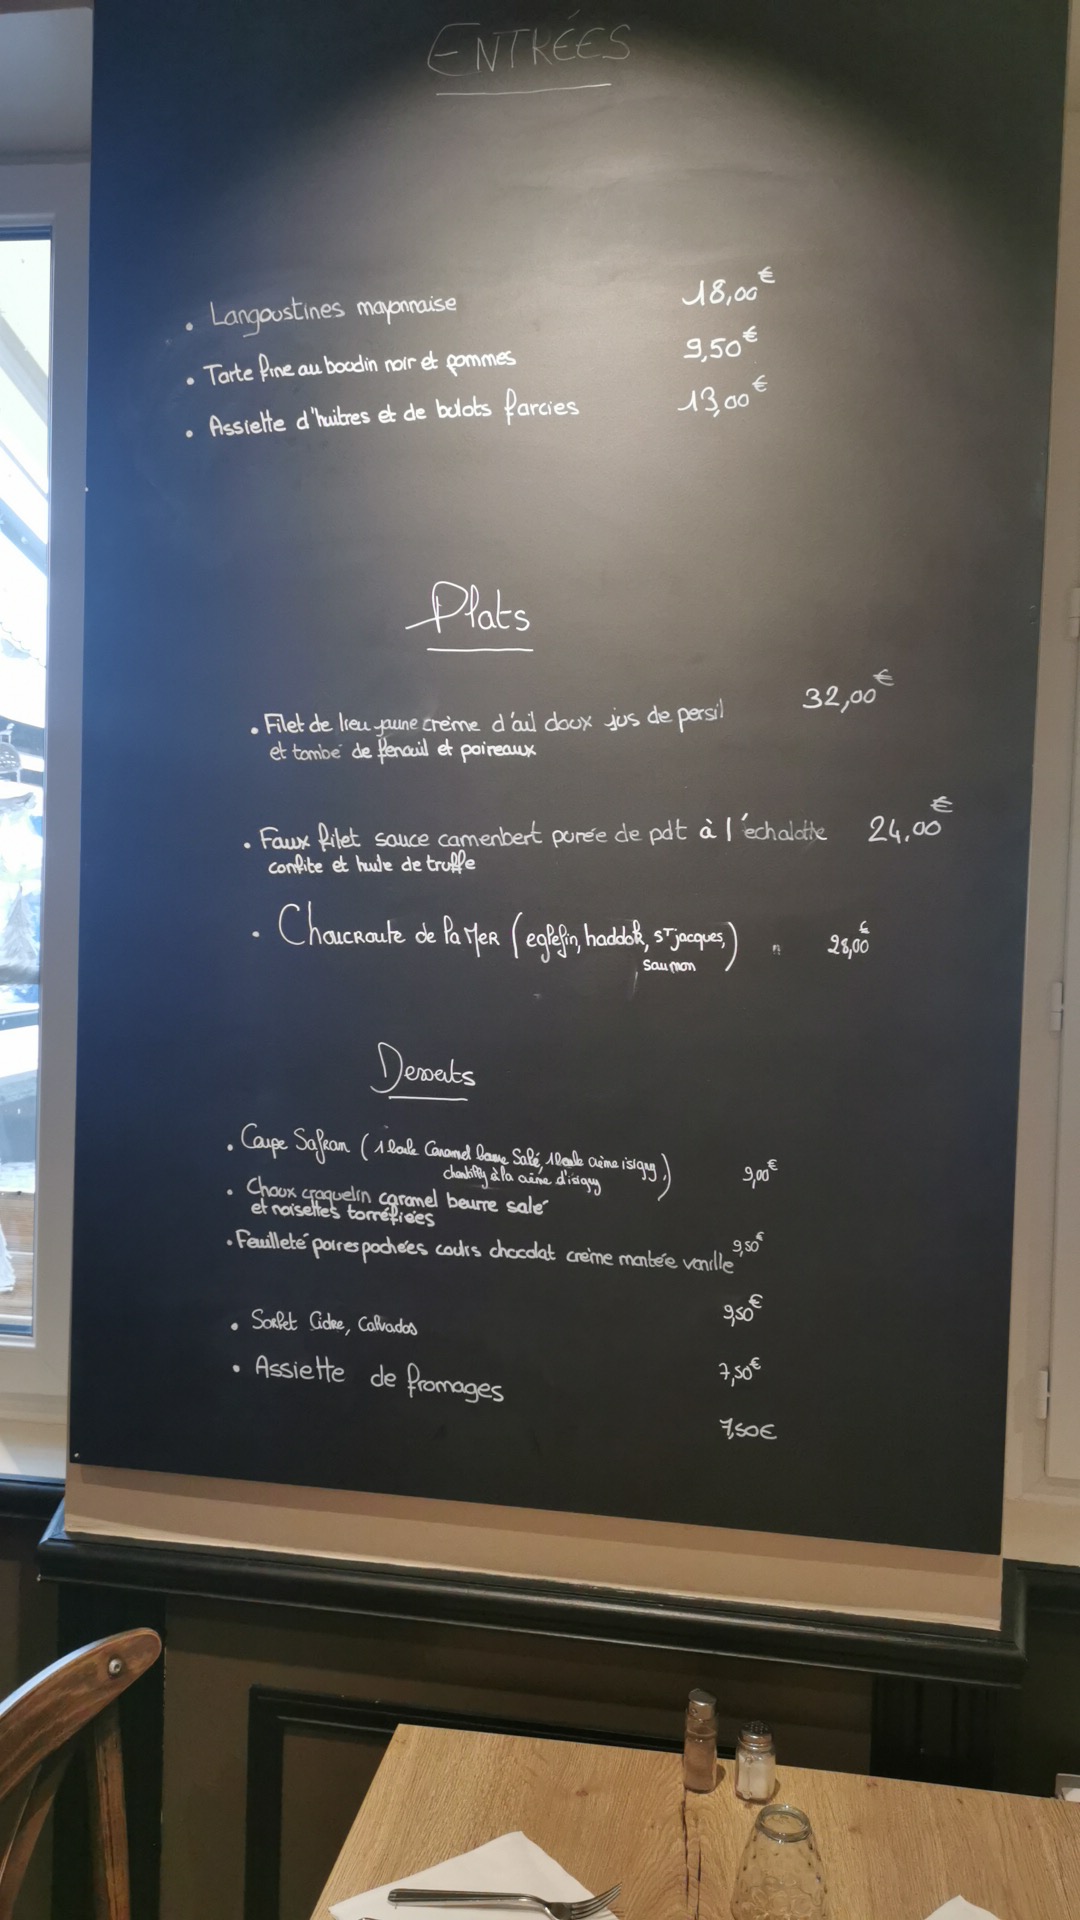 ENTRÉES
• Langoustines mayonnaise 18,00€
• Tarte fine au boudin noir et pommes 9,50€
• Assiette d'huitres et de bulots farcies 13,00€
Plats
• Filet de lieu jaune crème d'ail doux jus de persil 32,00€
et tombé de fenouil et poireaux
• Faux filet sauce camenbert purée de pdt à l'échalotte 24,00€
confite et huile de truffe
• Choucroute de la Mer (eglefin, haddok, sT jacques, 28,00€
saumon)
Desserts
• Coupe Safran (1 boule Caramel beurre Salé, 1 boule crème isigny, 9,00€
chantilly à la crème d'isigny)
• Choux craquelin caramel beurre salé
et noisettes torréfiées
9,50€
• Feuilleté poires pochées coulis chocolat crème montée vanille
9,50€
• Sorbet Cidre, Calvados
7,50€
• Assiette de fromages
7,50€